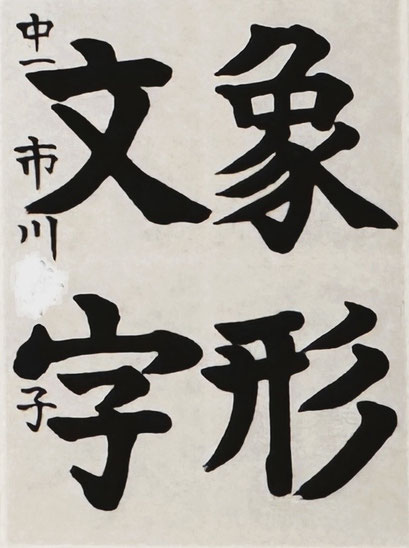 象形
文字
中一 市川 子